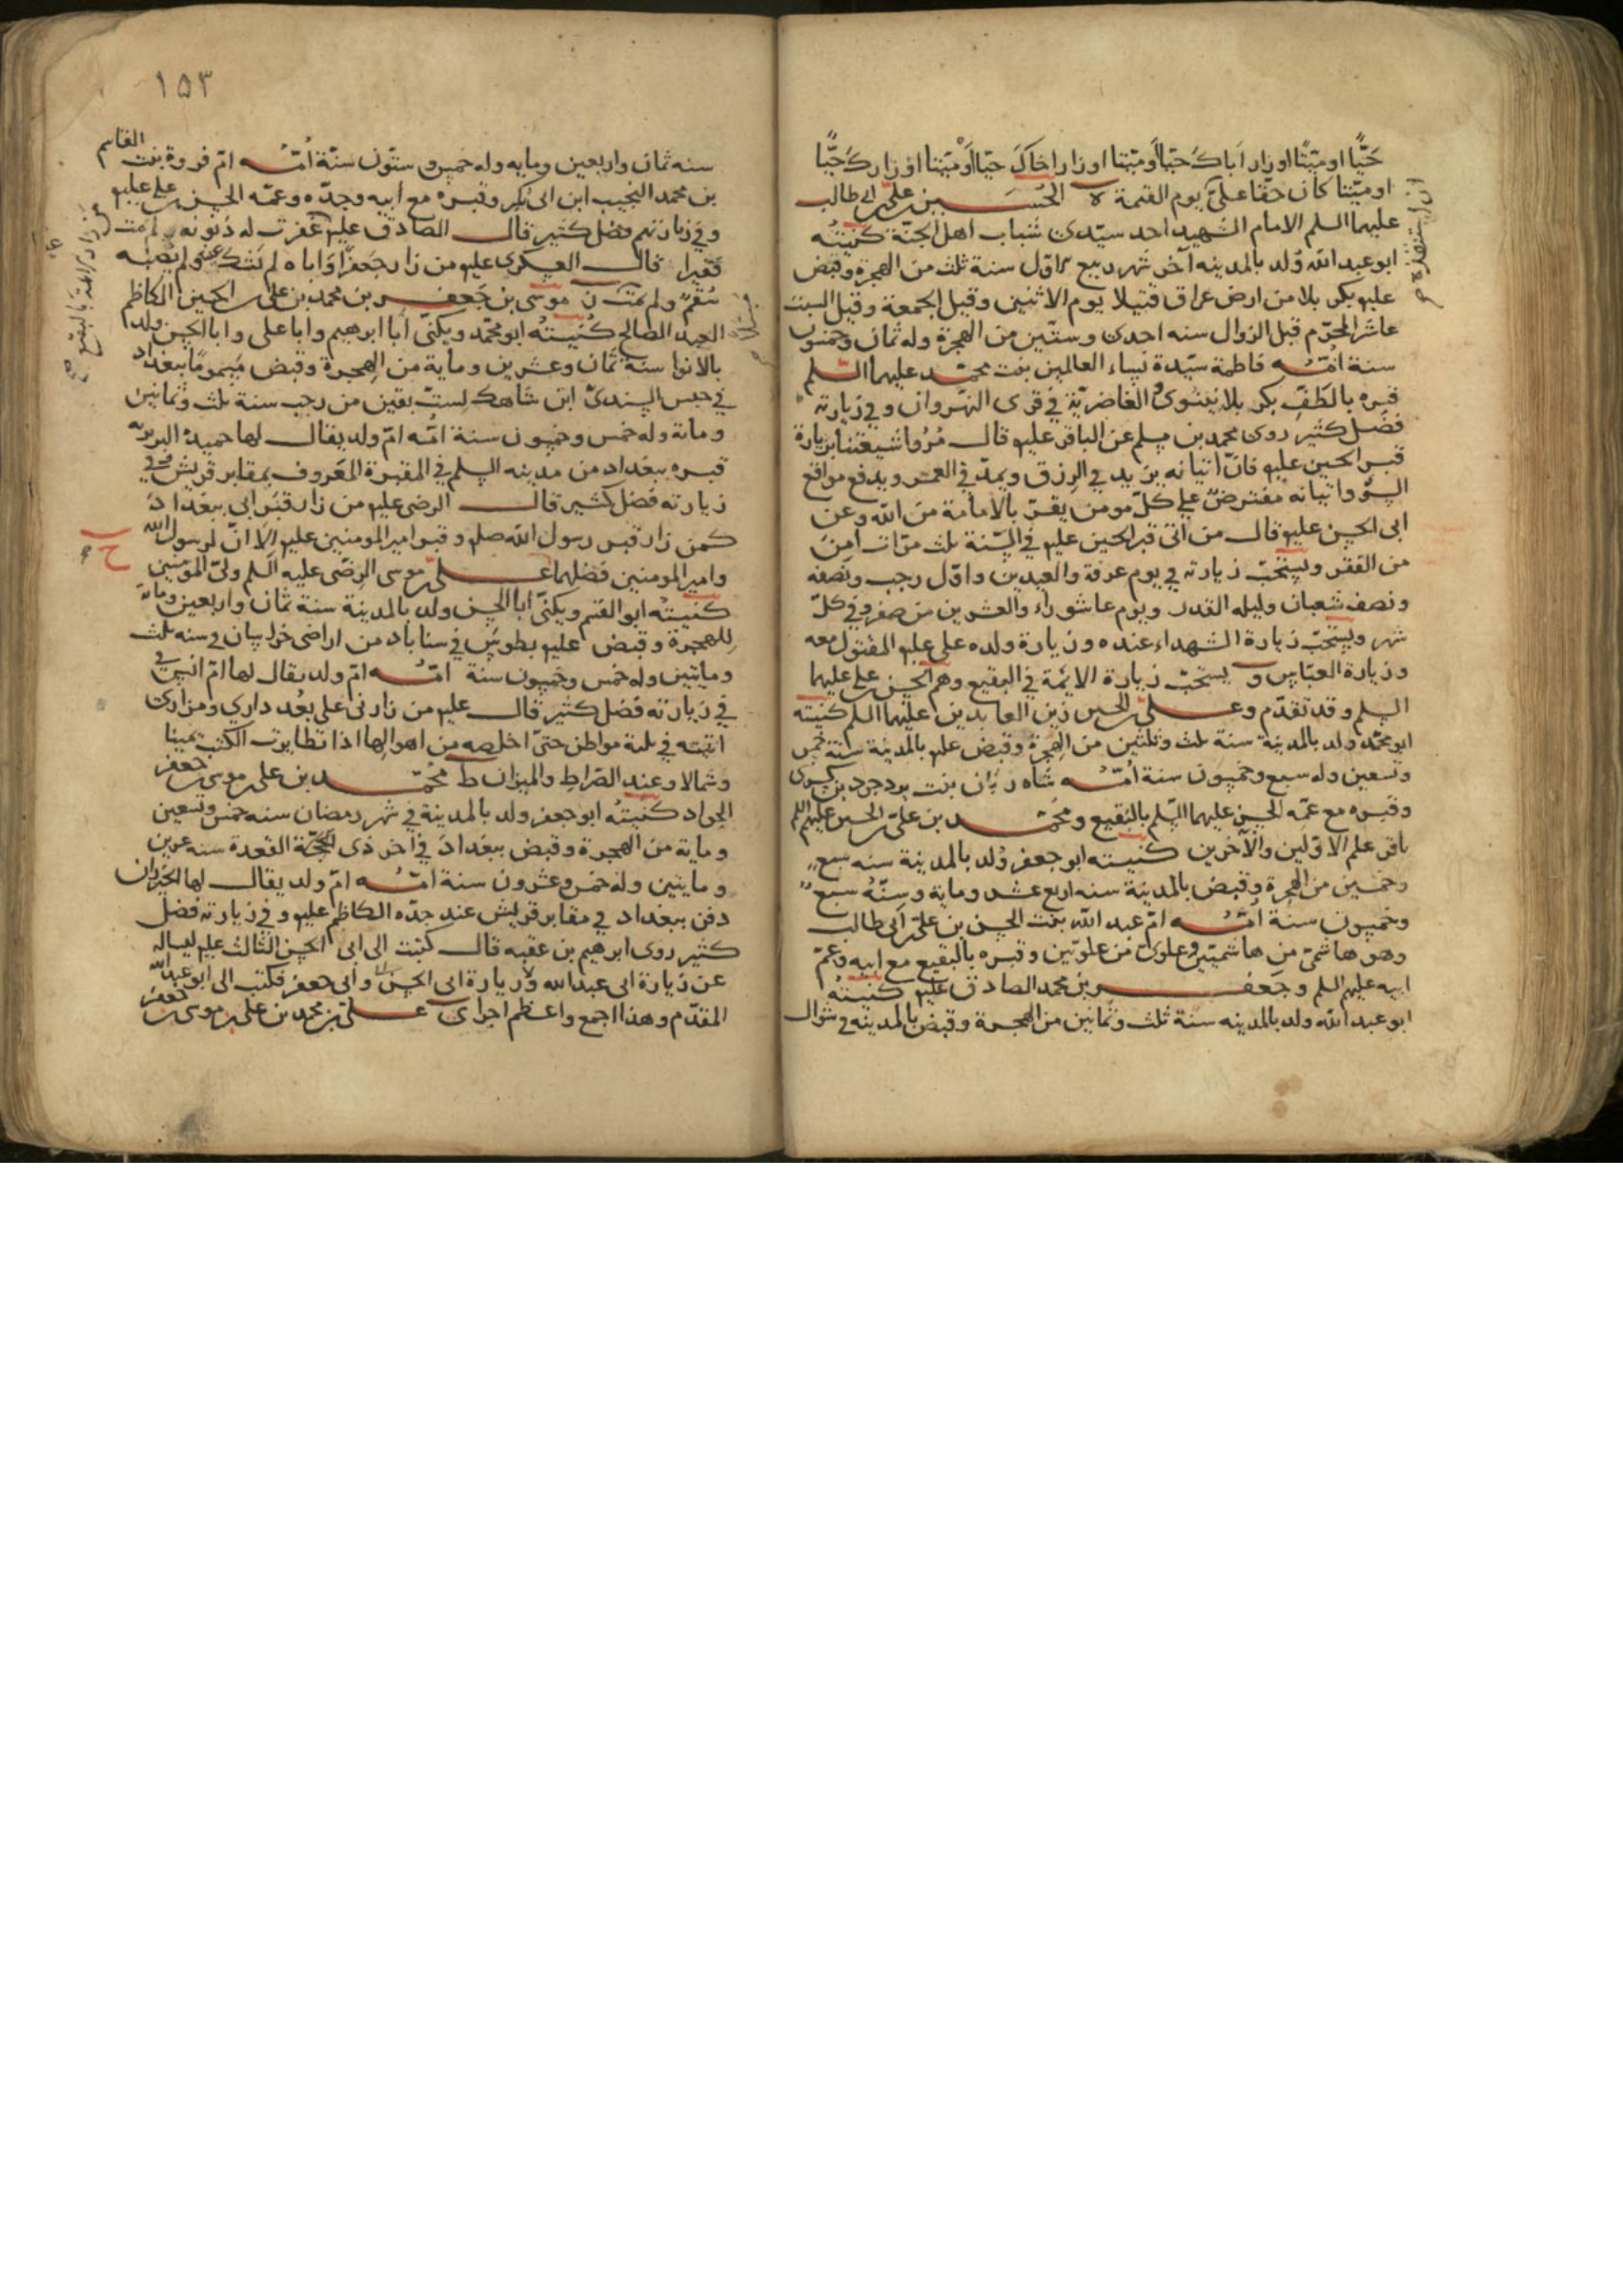 حَيًّا او ميّتًا او زار اَباكَ حيّا اَو ميّتا او زار اخاكَ حيّا اَوْ ميّتا او زارك حيًّا
او ميّتا كان حقّا علىّ يوم القيمة الحُسَـــين بن علىّ بن ابى طالب
عليهما السلم الامام الشهيد احد سيّدى شباب اهل الجنّة كنيتُه
ابو عبد الله وُلد بالمدينه آخر شهر ربيع الاوّل سنة ثلث من الهجرة وقبض
عليه بكربلا من ارض عراق قتيلا يوم الاثنين وقيل الجمعة وقيل السبت
عاشر المحرّم قبل الزوال سنه احدى وستّين من الهجرة وله ثمان وخمسون
سنة اُمّـــه فاطمة سيّدة نساء العالمين بنت محمّد عليهما السّلم
قبره بالطَفِّ بكربلا نينوىٰ الغاضريّة فى قرى النهروان وفى زيارته
فضل كثير روى محمد بن مسلم عن الباقر عليه قال مُرُوا شيعتنا بزيارة
قبر الحسين عليه فانّ اتيانه يزيد فى الرزق ويمدّ فى العمر ويدفع مواقع
السوْ واتيانه مفترضٌ على كلّ مومن يقرّ بالامامة من الله وعن
ابى الحسن عليه قال من اتى قبر الحسين عليه فى السّنة ثلث مرّات اَمِنَ
من الفقر ويستحبّ زيارته فى يوم عرفة والعيدين واوّل رجب ونصفه
ونصف شعبان وليله القدر ويوم عاشوراء والعشرين من صفر وفى كلّ
شهر ويستحبّ زيارة الشهداء عنده وزيارة ولده على عليه المقتول معه
وزيارة العبّاس و يستحبّ زيارة الايمّة فى البقيع وهم الحسن بن على عليهما
السلم وقد تقدّم وعـــلى بن الحسين زين العابدين عليهما السلم كنيته
ابو محمّد ولد بالمدينة سنة ثلث وثلثين من الهجرة وقبض عليه بالمدينة سنة خمس
وتسعين وله سبع وخمسون سنة اُمّـــه شاه زنان بنت يزدجرد بن كسرى
وقبره مع عمّه الحسن عليهما السّلم بالبقيع ومحمّـــد بن علىّ بن الحسين عليهم السلم
باقر علم الاوّلين والآخرين كنيته ابو جعفر وُلد بالمدينة سنه سبع
وخمسين من الهجرة وقبض بالمدينة سنه اربع عشر وماية وسنّهُ سبع
وخمسون سنة اُمّـــه امّ عبد الله بنت الحسن بن علىّ بن ابى طالب
وهو هاشمىّ من هاشميّين وعلوىّ من علويّين وقبره بالبقيع مع ابيه وعمّ
ابيه عليهم السلم وجعفـــر بن محمد الصادق عليه كنيتهُ
ابو عبد الله ولد بالمدينه سنة ثلث وثمانين من الهجرة وقبض بالمدينه فى شوال
١٥٣
سنه ثمان واربعين ومايه وله خمس وستّون سنة اُمّـــه امّ فروة بنت القاسم
بن محمد النجيب ابن ابى بكر وقبره مع ابيه وجدّه وعمّه الحسن بن على عليه
وفى زيارتهم فضل كثير قال الصادق عليه من زارنى غفرت له ذنوبه ولم يمت
فقيرا قال العسكرى عليه من زار جعفرًا وَاباه لم يشتك عينه ولم يصبه
سُقمٌ ولم يمت موسى بن جعفـــر بن محمد بن على بن الحسين الكاظم
العبد الصالح كُنيتهُ ابو محمّد ويكنّى اَبا ابرهيم وابا على وابا الحسن ولد
بالابوا سنة ثمان وعشرين وماية من الهجرة وقبض مسمومًا ببغداد
فى حبس السندىّ ابن شاهك لستّ بقين من رجب سنة ثلث وثمانين
وماتة وله خمس وخمسون سنة امّه امّ ولد يقال لها حميدة البربريه
قبره ببغداد من مدينه السلم فى المقبرة المعروف بمقابر قريش وفى
زيارته فضل كثير قال الرضى عليه من زار قبر ابى ببغداد
كمن زار قبر رسول الله صلم وقبر امير المومنين عليه الا انّ لرسول الله
وامير المومنين فضلهما عـــلى بن موسى الرضى عليه السلم ولىّ المؤمنين
كنيتهُ ابو القسم ويكنّى ابا الحسن ولد بالمدينة سنة ثمان واربعين وماتة
للهجرة وقبض عليه بطوس فى سناباد من اراضى خراسان فى سنه ثلث
وماتين وله خمس وخمسون سنة امّـــه امّ ولد يقال لها امّ البنين
فى زيارته فضل كثير قال عليه من زارنى على بُعد دارى ومزارى
اتيته فى ثلثة مواطن حتىّ اخلصه من اهوالها اذا تطايرت الكتب يمينا
وشمالا وعند الصراط والميزان ط محمّـــد بن على بن موسى بن جعفر
الجواد كنيتهُ ابو جعفر ولد بالمدينة فى شهر رمضان سنه خمس وتسعين
وماية من الهجرة وقبض ببغداد فى اخر ذى القعدة سنه عشرين
وماتيين وله خمس وعشرون سنة امّـــه امّ ولد يقال لها الخيزران
دفن ببغداد فى مقابر قريش عند جدّه الكاظم عليه وفى زيارته فضل
كثير روى ابرهيم بن عقبه قال كتبت الى ابى الحسن الثالث عليه اساله
عن زيارة ابى عبد الله وزيارة ابى الحسن وابى جعفر فكتب الى ابو عبد الله
المقدّم وهذا اجمع واعظم اجرا ى عـــلى بن محمد بن على بن موسى بن جعفر